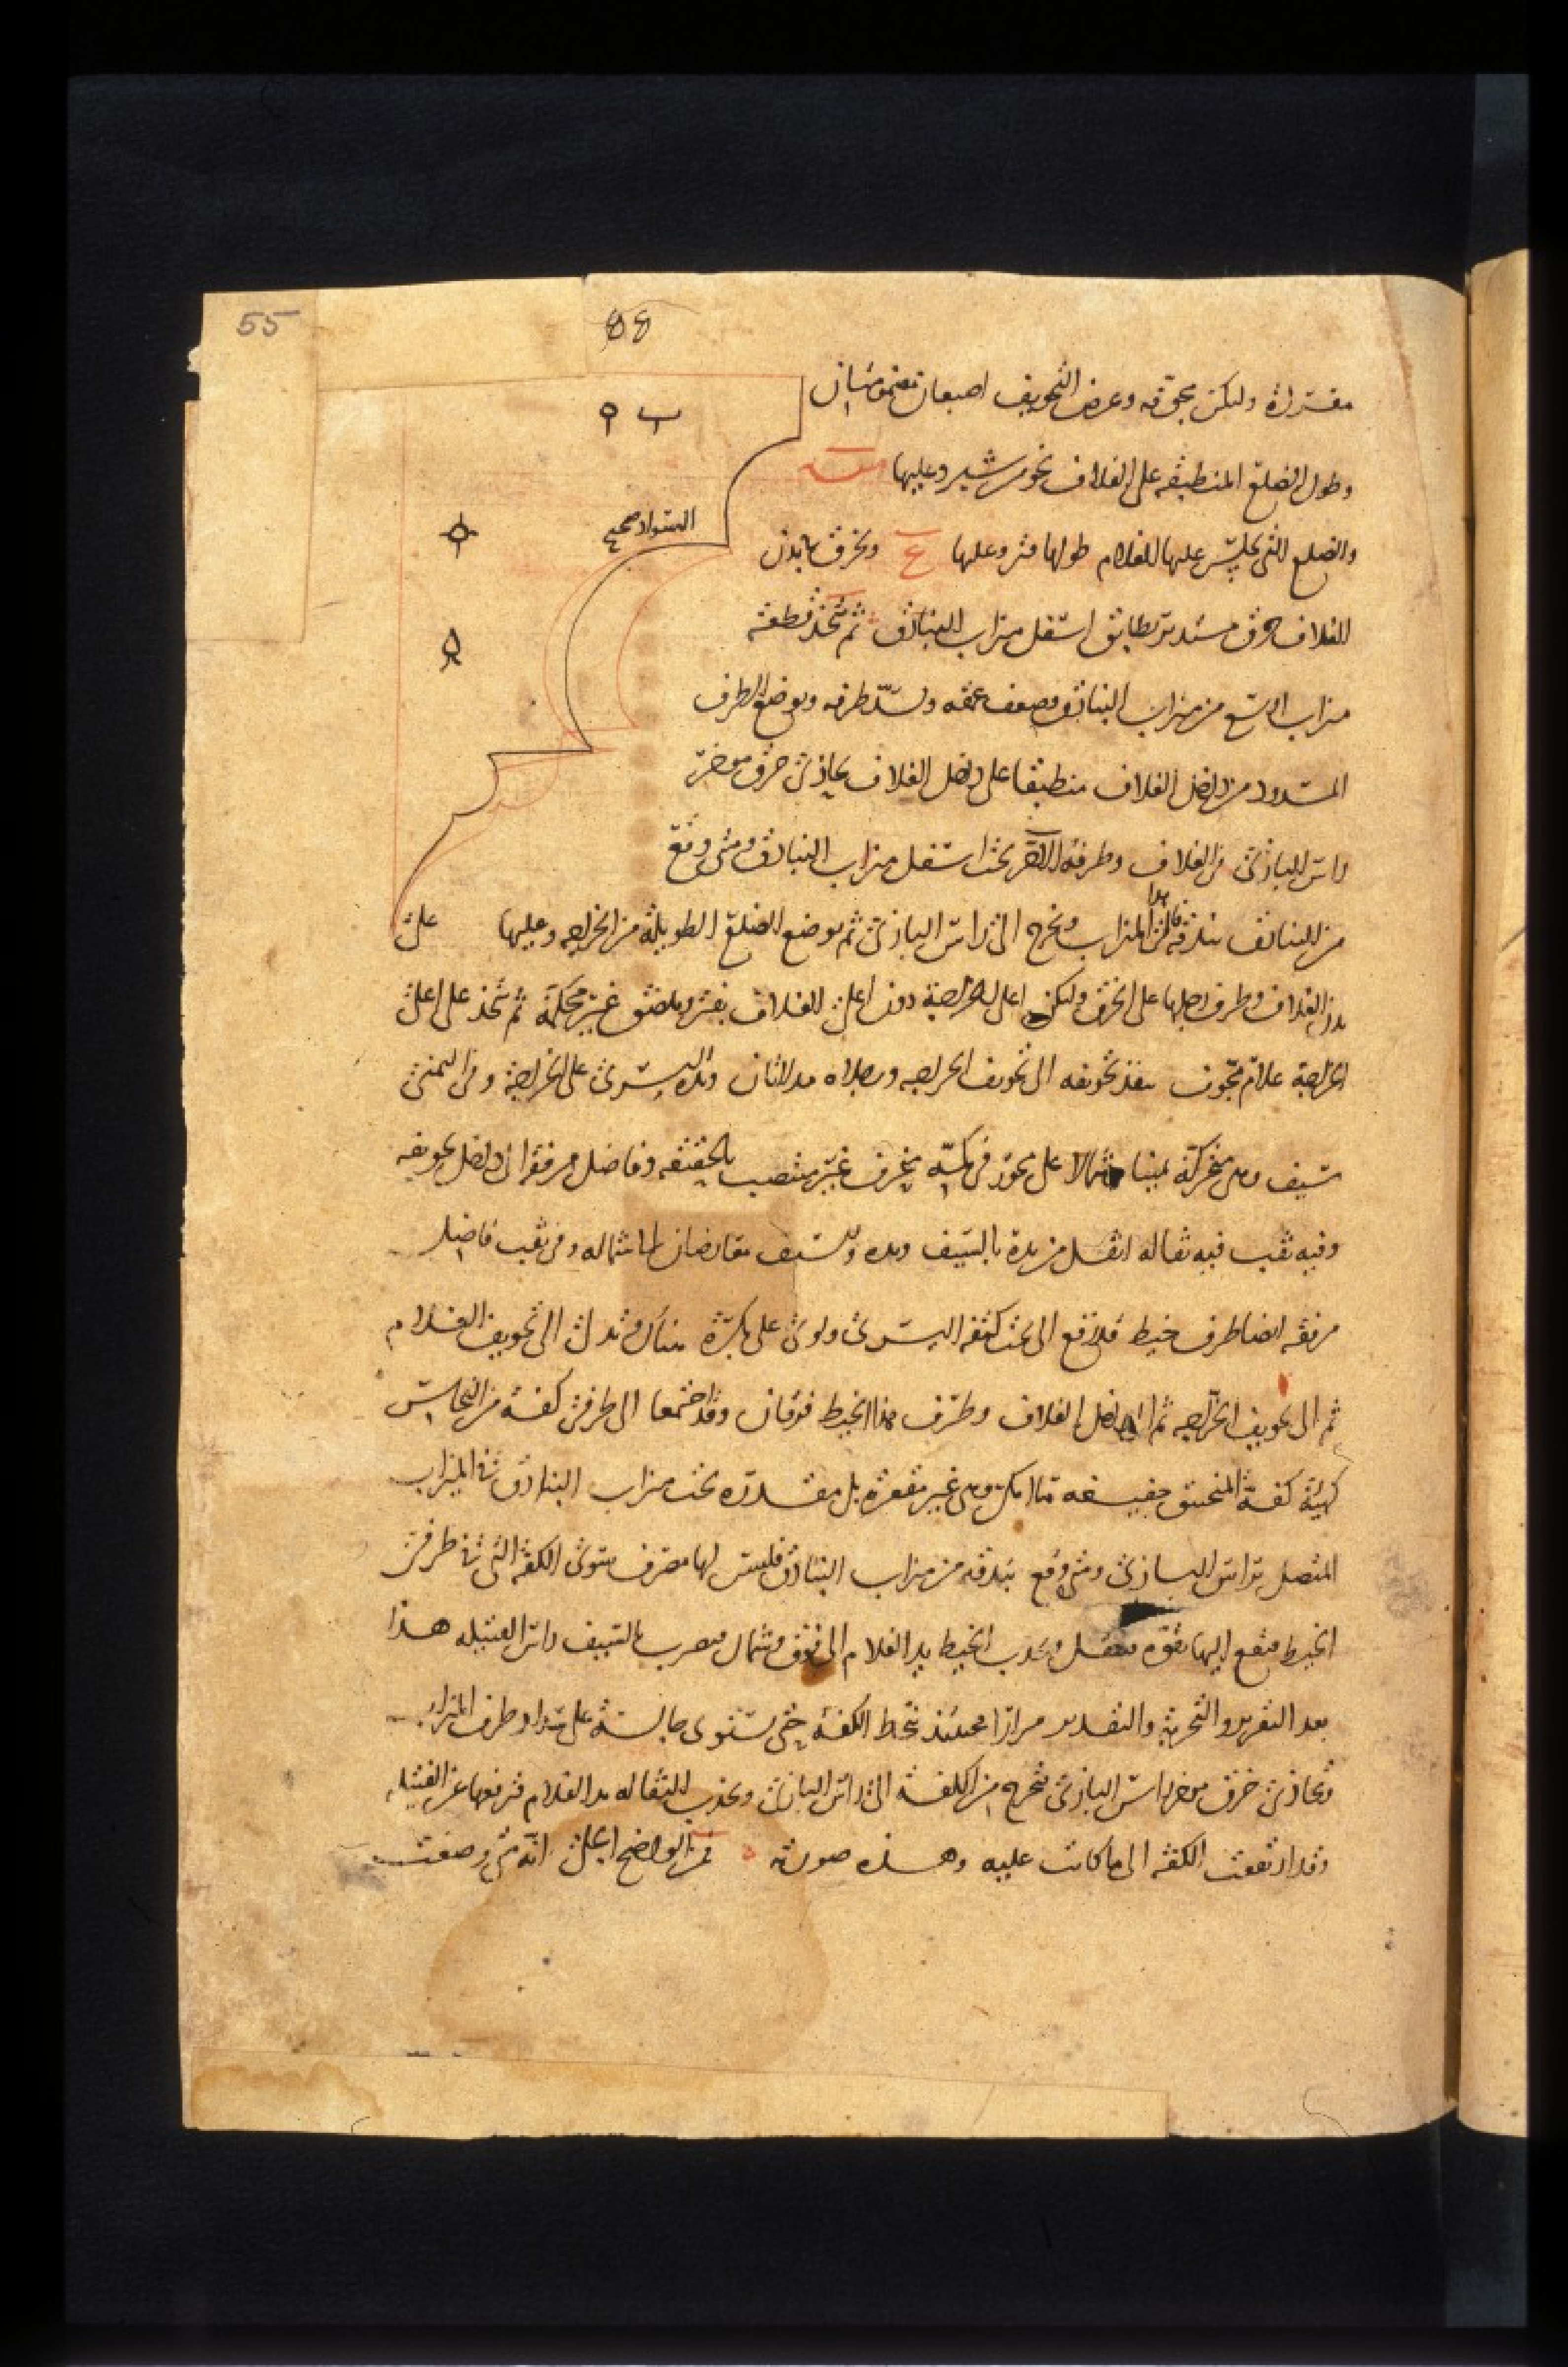 55
وليكن مجوفه وعرض التجويف اصبعان
وطول الضلع المنطبقه على الغلاف نحو من شبر وعليها
والضلع التى يجلس عليها الغلام طولها فتر وعليها ع ويخرق
السواد صحيح
الغلاف خرق مستدير يطابق اسفل ميزاب البنادق ثم يتخذ قطعة
ميزاب اوسع من ميزاب البنادق وضعف عمقه ويسد طرفه ويوضع الطرف
المسدود من داخل الغلاف منطبقا على داخل الغلاف يحاذى خرق موخر
راس البازى فى الغلاف وطرفه الاخر تحت اسفل ميزاب البنادق ومتى وقع
من البنادق بندقه المیزاب وتخرج الى راس البازى ثم يوضع الضلع الطويلة من الخراجه وعليها على
الغلاف وطرف على الخرق وليكن اعلى الخراجة دون اعلى الغلاف بفتر ويلصق غير محكمة ثم يتخذ على اعلى
الخراجة غلام مجوف ينفذ تجويفه الى تجويف الخراجه ورجلاه ويده اليسرى على الخراجة وفى اليمنى
سيف وهى متحركة يمينا وشمالا على محور فى كمه منحرف غير منتصب بالحقيقه وفاضل مرفقه الى داخل تجويفه
وفيه ثقب فيه ثقاله اثقل من يده بالسيف ويده والسيف الى شماله وفى ثقب فاضل
مرفقه ايضا طرف خيط قد رفع الى تحت كتفه اليسرى ولوى على بكرة هناك وتدلى الى تجويف الغلام
ثم الى تجويف الخراجه ثم الى داخل الغلاف وطرف هذا الخيط فرقان وقد اجتمعا الى طرفى كفة من النحاس
كهيئة كفة المنجنيق خفيفه ما امكن وهى غير مقعرة بل مقدرة تحت ميزاب البنادق فى الميزاب
المتصل براس البازى ومتى وقع بندقه من ميزاب البنادق فليس لها مصرف سوى الكفة التى فى طرفى
الخيط فتقع اليها بقوة فتثقل ويجذب الخيط يد الغلام الى فوق وشمال فيضرب بالسيف راس الفتيله هذا
بعد التقرير والتجربة والتقدير مرارا فحينئذ تنحط الكفة حتى تستوى جالسة على سواد طرف الميزاب
وتحاذى خرق موخر راس البازى فتخرج من الكفة الى راس البازى وتجذب الثقاله يد الغلام فترفعها عن الفتيله
وقد ارتفعت الكفة الى ما كانت عليه وهذه صورته فمن الواضح الجلى انه متى وضعت